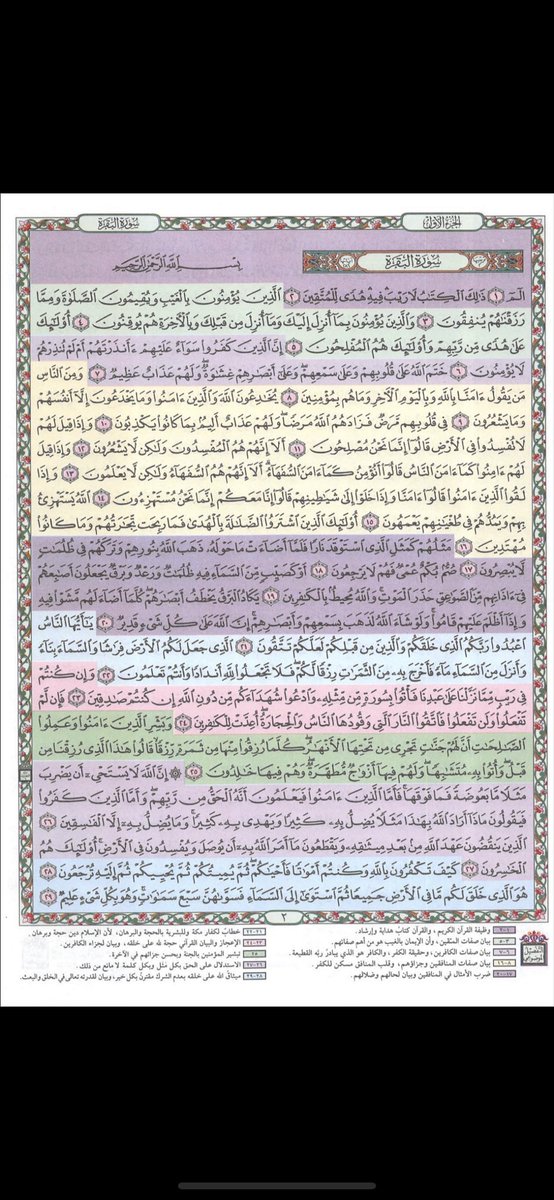 سورة البقرة
الجزء الأول
سورة البقرة
بسم الله الرحمن الرحيم
الٓمٓ ١ ذَٰلِكَ ٱلْكِتَٰبُ لَا رَيْبَ فِيهِ هُدًى لِّلْمُتَّقِينَ ٢ ٱلَّذِينَ يُؤْمِنُونَ بِٱلْغَيْبِ وَيُقِيمُونَ ٱلصَّلَوٰةَ وَمِمَّا
رَزَقْنَٰهُمْ يُنفِقُونَ ٣ وَٱلَّذِينَ يُؤْمِنُونَ بِمَآ أُنزِلَ إِلَيْكَ وَمَآ أُنزِلَ مِن قَبْلِكَ وَبِٱلْءَاخِرَةِ هُمْ يُوقِنُونَ ٤ أُو۟لَٰٓئِكَ
عَلَىٰ هُدًى مِّن رَّبِّهِمْ وَأُو۟لَٰٓئِكَ هُمُ ٱلْمُفْلِحُونَ ٥ إِنَّ ٱلَّذِينَ كَفَرُوا۟ سَوَآءٌ عَلَيْهِمْ ءَأَنذَرْتَهُمْ أَمْ لَمْ تُنذِرْهُمْ
لَا يُؤْمِنُونَ ٦ خَتَمَ ٱللَّهُ عَلَىٰ قُلُوبِهِمْ وَعَلَىٰ سَمْعِهِمْ وَعَلَىٰٓ أَبْصَٰرِهِمْ غِشَٰوَةٌ وَلَهُمْ عَذَابٌ عَظِيمٌ ٧ وَمِنَ ٱلنَّاسِ
مَن يَقُولُ ءَامَنَّا بِٱللَّهِ وَبِٱلْيَوْمِ ٱلْءَاخِرِ وَمَا هُم بِمُؤْمِنِينَ ٨ يُخَٰدِعُونَ ٱللَّهَ وَٱلَّذِينَ ءَامَنُوا۟ وَمَا يَخْدَعُونَ إِلَّآ أَنفُسَهُمْ
وَمَا يَشْعُرُونَ ٩ فِى قُلُوبِهِم مَّرَضٌ فَزَادَهُمُ ٱللَّهُ مَرَضًا وَلَهُمْ عَذَابٌ أَلِيمٌۢ بِمَا كَانُوا۟ يَكْذِبُونَ ١٠ وَإِذَا قِيلَ لَهُمْ
لَا تُفْسِدُوا۟ فِى ٱلْأَرْضِ قَالُوٓا۟ إِنَّمَا نَحْنُ مُصْلِحُونَ ١١ أَلَآ إِنَّهُمْ هُمُ ٱلْمُفْسِدُونَ وَلَٰكِن لَّا يَشْعُرُونَ ١٢ وَإِذَا قِيلَ
لَهُمْ ءَامِنُوا۟ كَمَآ ءَامَنَ ٱلنَّاسُ قَالُوٓا۟ أَنُؤْمِنُ كَمَآ ءَامَنَ ٱلسُّفَهَآءُ أَلَآ إِنَّهُمْ هُمُ ٱلسُّفَهَآءُ وَلَٰكِن لَّا يَعْلَمُونَ ١٣ وَإِذَا
لَقُوا۟ ٱلَّذِينَ ءَامَنُوا۟ قَالُوٓا۟ ءَامَنَّا وَإِذَا خَلَوْا۟ إِلَىٰ شَيَٰطِينِهِمْ قَالُوٓا۟ إِنَّا مَعَكُمْ إِنَّمَا نَحْنُ مُسْتَهْزِءُونَ ١٤ ٱللَّهُ يَسْتَهْزِئُ
بِهِمْ وَيَمُدُّهُمْ فِى طُغْيَٰنِهِمْ يَعْمَهُونَ ١٥ أُو۟لَٰٓئِكَ ٱلَّذِينَ ٱشْتَرَوُا۟ ٱلضَّلَٰلَةَ بِٱلْهُدَىٰ فَمَا رَبِحَت تِّجَٰرَتُهُمْ وَمَا كَانُوا۟
مُهْتَدِينَ ١٦ مَثَلُهُمْ كَمَثَلِ ٱلَّذِى ٱسْتَوْقَدَ نَارًا فَلَمَّآ أَضَآءَتْ مَا حَوْلَهُۥ ذَهَبَ ٱللَّهُ بِنُورِهِمْ وَتَرَكَهُمْ فِى ظُلُمَٰتٍ
لَّا يُبْصِرُونَ ١٧ صُمٌّۢ بُكْمٌ عُمْىٌ فَهُمْ لَا يَرْجِعُونَ ١٨ أَوْ كَصَيِّبٍ مِّنَ ٱلسَّمَآءِ فِيهِ ظُلُمَٰتٌ وَرَعْدٌ وَبَرْقٌ يَجْعَلُونَ أَصَٰبِعَهُمْ
فِىٓ ءَاذَانِهِم مِّنَ ٱلصَّوَٰعِقِ حَذَرَ ٱلْمَوْتِ وَٱللَّهُ مُحِيطٌۢ بِٱلْكَٰفِرِينَ ١٩ يَكَادُ ٱلْبَرْقُ يَخْطَفُ أَبْصَٰرَهُمْ كُلَّمَآ أَضَآءَ لَهُم مَّشَوْا۟ فِيهِ
وَإِذَآ أَظْلَمَ عَلَيْهِمْ قَامُوا۟ وَلَوْ شَآءَ ٱللَّهُ لَذَهَبَ بِسَمْعِهِمْ وَأَبْصَٰرِهِمْ إِنَّ ٱللَّهَ عَلَىٰ كُلِّ شَىْءٍ قَدِيرٌ ٢٠ يَٰٓأَيُّهَا ٱلنَّاسُ
ٱعْبُدُوا۟ رَبَّكُمُ ٱلَّذِى خَلَقَكُمْ وَٱلَّذِينَ مِن قَبْلِكُمْ لَعَلَّكُمْ تَتَّقُونَ ٢١ ٱلَّذِى جَعَلَ لَكُمُ ٱلْأَرْضَ فِرَٰشًا وَٱلسَّمَآءَ بِنَآءً
وَأَنزَلَ مِنَ ٱلسَّمَآءِ مَآءً فَأَخْرَجَ بِهِۦ مِنَ ٱلثَّمَرَٰتِ رِزْقًا لَّكُمْ فَلَا تَجْعَلُوا۟ لِلَّهِ أَندَادًا وَأَنتُمْ تَعْلَمُونَ ٢٢ وَإِن كُنتُمْ
فِى رَيْبٍ مِّمَّا نَزَّلْنَا عَلَىٰ عَبْدِنَا فَأْتُوا۟ بِسُورَةٍ مِّن مِّثْلِهِۦ وَٱدْعُوا۟ شُهَدَآءَكُم مِّن دُونِ ٱللَّهِ إِن كُنتُمْ صَٰدِقِينَ ٢٣ فَإِن لَّمْ
تَفْعَلُوا۟ وَلَن تَفْعَلُوا۟ فَٱتَّقُوا۟ ٱلنَّارَ ٱلَّتِى وَقُودُهَا ٱلنَّاسُ وَٱلْحِجَارَةُ أُعِدَّتْ لِلْكَٰفِرِينَ ٢٤ وَبَشِّرِ ٱلَّذِينَ ءَامَنُوا۟ وَعَمِلُوا۟
ٱلصَّٰلِحَٰتِ أَنَّ لَهُمْ جَنَّٰتٍ تَجْرِى مِن تَحْتِهَا ٱلْأَنْهَٰرُ كُلَّمَا رُزِقُوا۟ مِنْهَا مِن ثَمَرَةٍ رِّزْقًا قَالُوا۟ هَٰذَا ٱلَّذِى رُزِقْنَا مِن
قَبْلُ وَأُتُوا۟ بِهِۦ مُتَشَٰبِهًا وَلَهُمْ فِيهَآ أَزْوَٰجٌ مُّطَهَّرَةٌ وَهُمْ فِيهَا خَٰلِدُونَ ٢٥ ۞ إِنَّ ٱللَّهَ لَا يَسْتَحْىِۦٓ أَن يَضْرِبَ
مَثَلًا مَّا بَعُوضَةً فَمَا فَوْقَهَا فَأَمَّا ٱلَّذِينَ ءَامَنُوا۟ فَيَعْلَمُونَ أَنَّهُ ٱلْحَقُّ مِن رَّبِّهِمْ وَأَمَّا ٱلَّذِينَ كَفَرُوا۟
فَيَقُولُونَ مَاذَآ أَرَادَ ٱللَّهُ بِهَٰذَا مَثَلًا يُضِلُّ بِهِۦ كَثِيرًا وَيَهْدِى بِهِۦ كَثِيرًا وَمَا يُضِلُّ بِهِۦٓ إِلَّا ٱلْفَٰسِقِينَ ٢٦
ٱلَّذِينَ يَنقُضُونَ عَهْدَ ٱللَّهِ مِنۢ بَعْدِ مِيثَٰقِهِۦ وَيَقْطَعُونَ مَآ أَمَرَ ٱللَّهُ بِهِۦٓ أَن يُوصَلَ وَيُفْسِدُونَ فِى ٱلْأَرْضِ أُو۟لَٰٓئِكَ هُمُ
ٱلْخَٰسِرُونَ ٢٧ كَيْفَ تَكْفُرُونَ بِٱللَّهِ وَكُنتُمْ أَمْوَٰتًا فَأَحْيَٰكُمْ ثُمَّ يُمِيتُكُمْ ثُمَّ يُحْيِيكُمْ ثُمَّ إِلَيْهِ تُرْجَعُونَ ٢٨
هُوَ ٱلَّذِى خَلَقَ لَكُم مَّا فِى ٱلْأَرْضِ جَمِيعًا ثُمَّ ٱسْتَوَىٰٓ إِلَى ٱلسَّمَآءِ فَسَوَّىٰهُنَّ سَبْعَ سَمَٰوَٰتٍ وَهُوَ بِكُلِّ شَىْءٍ عَلِيمٌ ٢٩
٢
١-٢ وظيفة القرآن الكريم ، والقرآن كتاب هداية وإرشاد.
٣-٥ بيان صفات المتقين، وأن الإيمان بالغيب هو من أهم صفاتهم.
٦-٧ بيان صفات الكافرين، وحقيقة الكفر، والكافر هو الذي يبادر ربه القطيعة.
٨-١٦ بيان صفات المنافقين وجزاؤهم، وقلب المنافق مسكن للكفر.
١٧-٢٠ ضرب الأمثال في المنافقين وبيان لحالهم وضلالهم.
٢١-٢٢ خطاب لكفار مكة وللبشرية بالحجة والبرهان، لأن الإسلام دين حجة وبرهان.
٢٣-٢٤ الإعجاز والبيان القرآني حجة لله على خلقه ، وبيان لجزاء الكافرين.
٢٥ تبشير المؤمنين بالجنة وبحسن جزائهم في الآخرة.
٢٦-٢٧ الاستدلال على الحق بكل مثل وبكل كلمة لا مانع من ذلك.
٢٨-٢٩ ميثاق الله على خلقه بعدم الشرك مقترن بكل خير، وبيان لقدرته تعالى في الخلق والبعث.